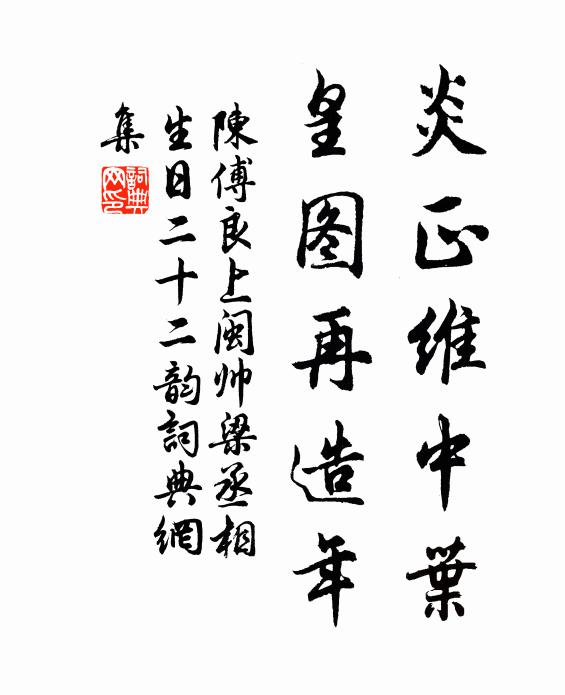 炎正維中葉
皇图再造年
陳傅良上闽帅梁丞相
生日二十二韵詞典網
集
詞典
网印